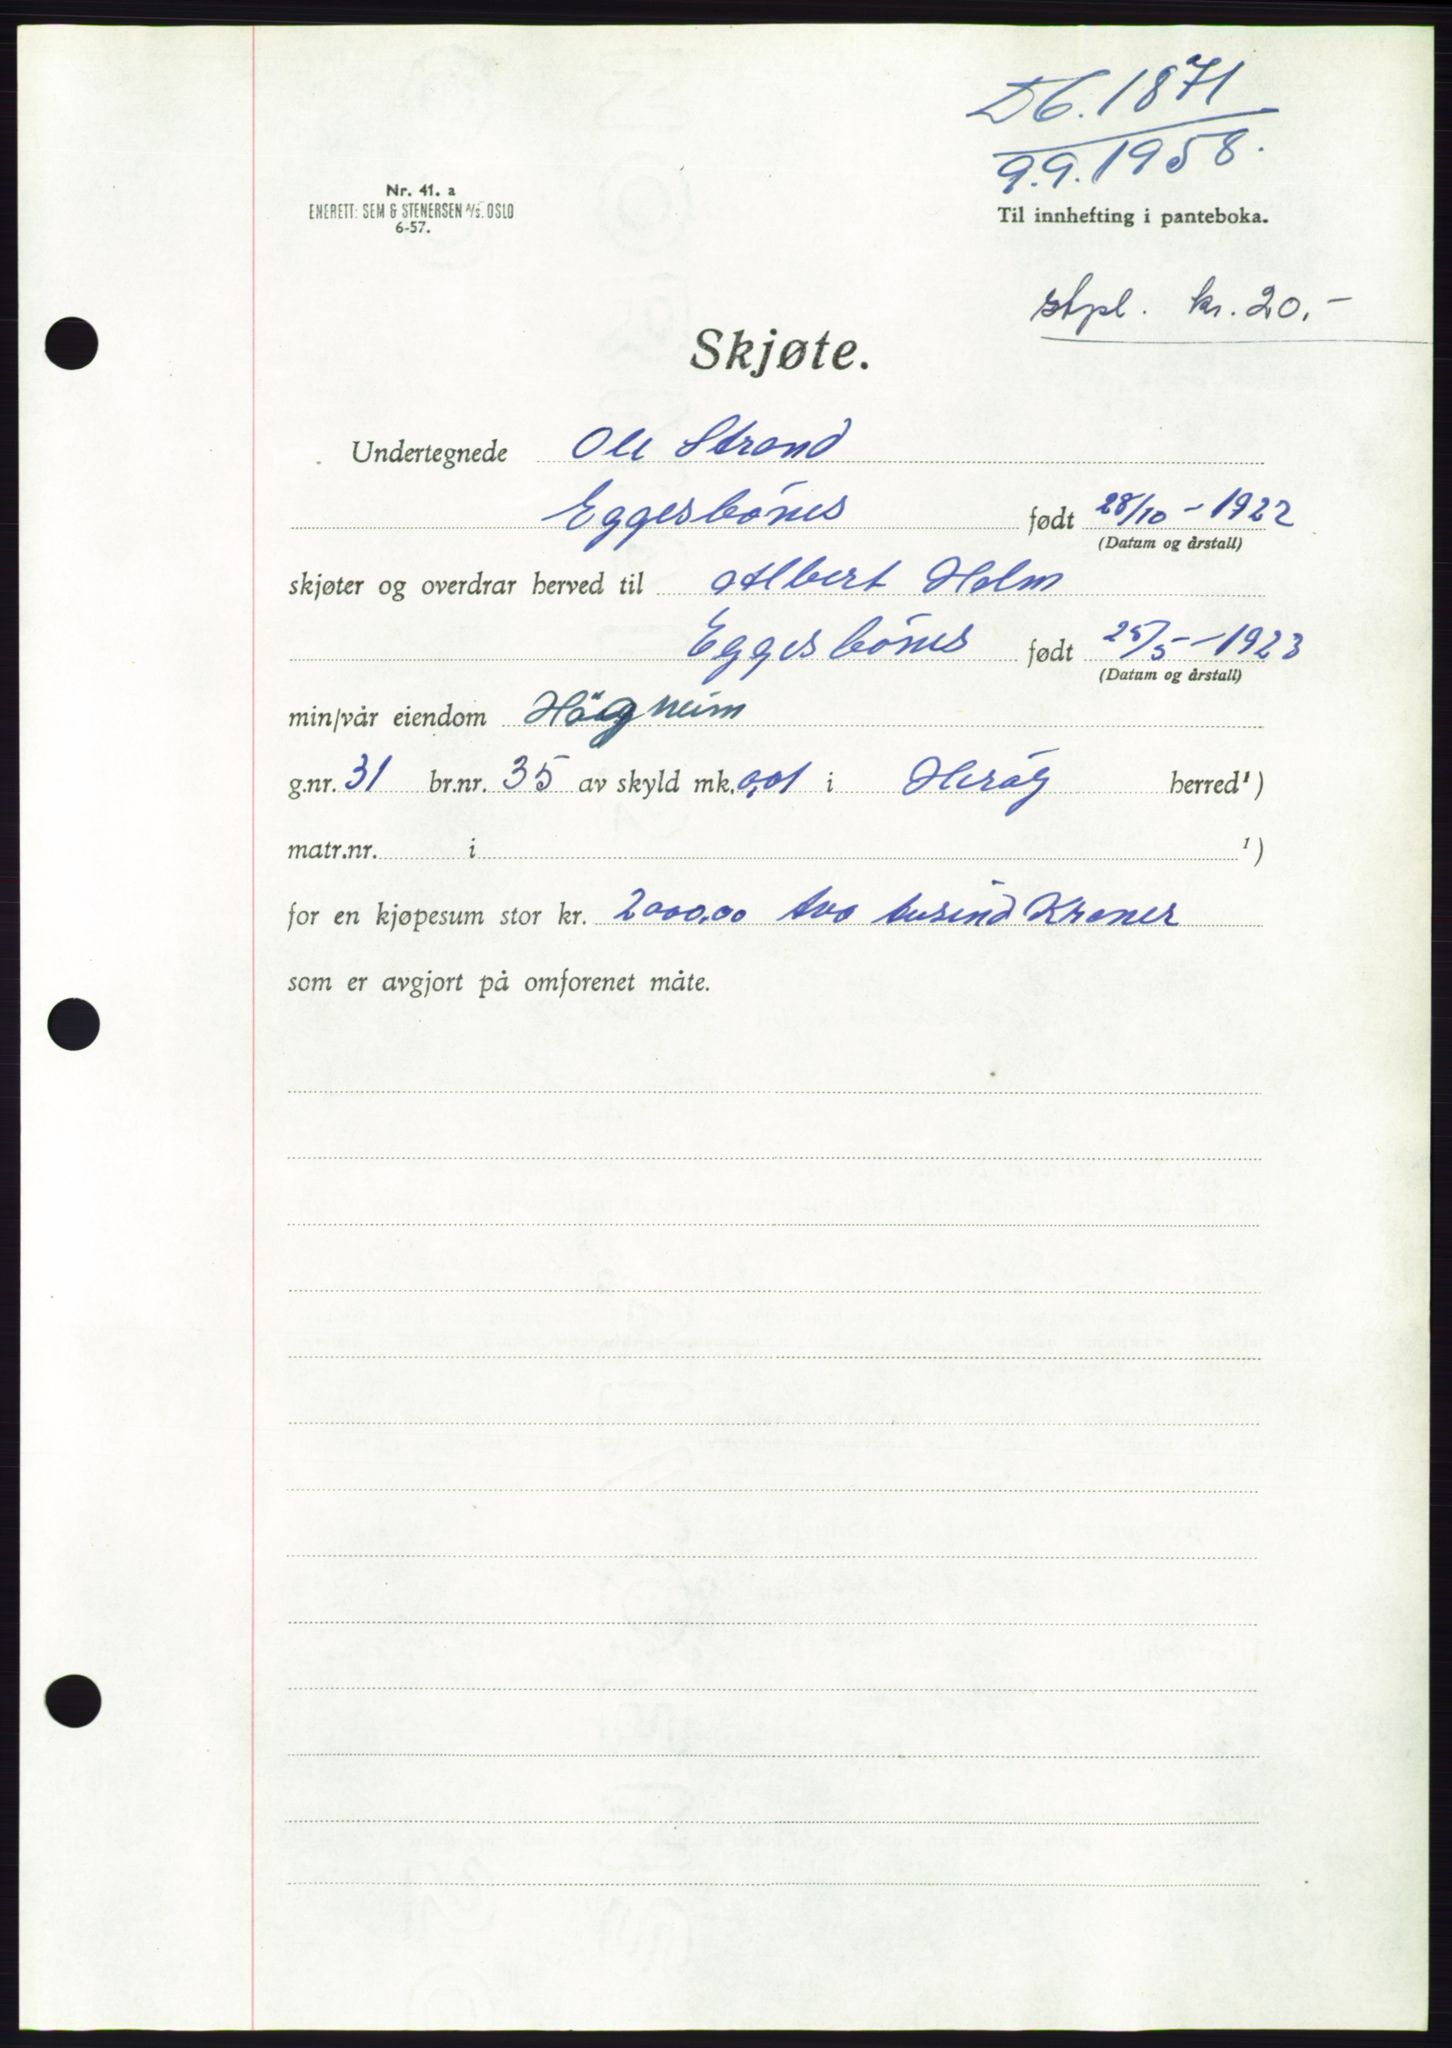 Db. 1871
9.9.1958.
Nr. 41. a
ENERETT: SEM & STENERSEN A/S. OSLO
6-57.
Til innhefting i panteboka.
stpl. kr. 20.-
Skjøte.
Undertegnede Ole Strand
Eggesbönes født 28/10 - 1922
(Datum og årstall)
skjøter og overdrar herved til Albert Holm
Eggesbönes født 25/5 - 1923
(Datum og årstall)
min/vår eiendom Högheim
g.nr. 31 br.nr. 35 av skyld mk. 0,01 i Heröy herred ¹)
matr.nr. i ¹)
for en kjøpesum stor kr. 2000,00 tvo tusind Kroner
som er avgjort på omforenet måte.